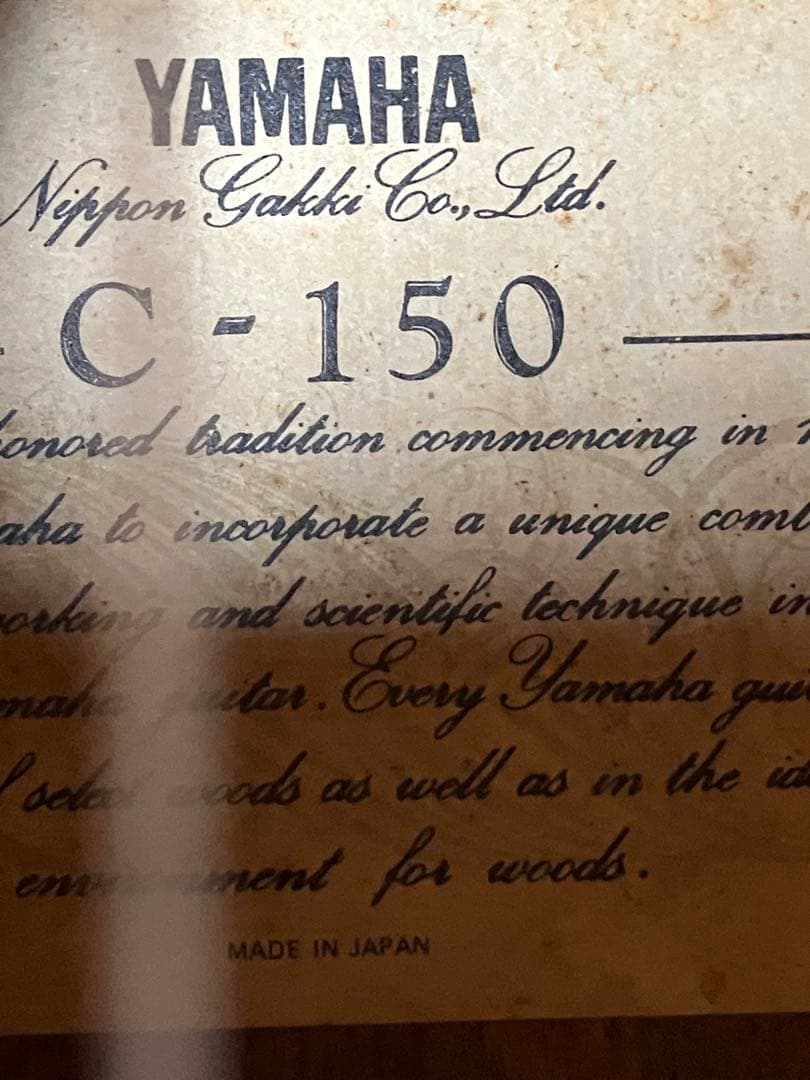 YAMAHA
Nippon Gakki Co., Ltd.
C - 150
honored tradition commencing in
to incorporate a unique
and scientific technique in
guitar. Every Yamaha
select woods as well as in the
environment for woods.
MADE IN JAPAN